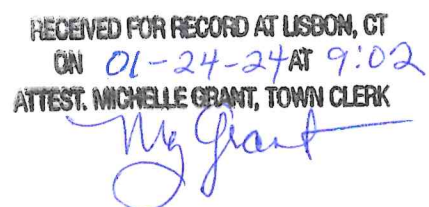 RECEIVED FOR RECORD AT LISBON, CT
ON 01-24-24 AT 9:02
ATTEST. MICHELLE GRANT, TOWN CLERK
M Grant